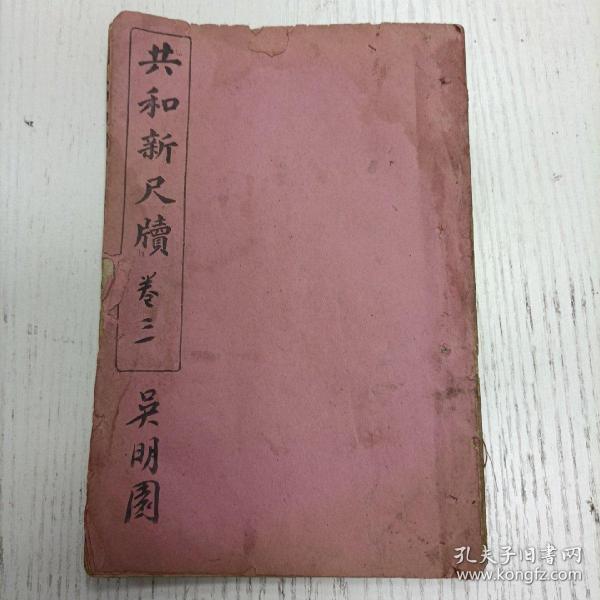 共和新尺牘 卷三
吴明園
孔夫子旧书网
www.kongfz.com